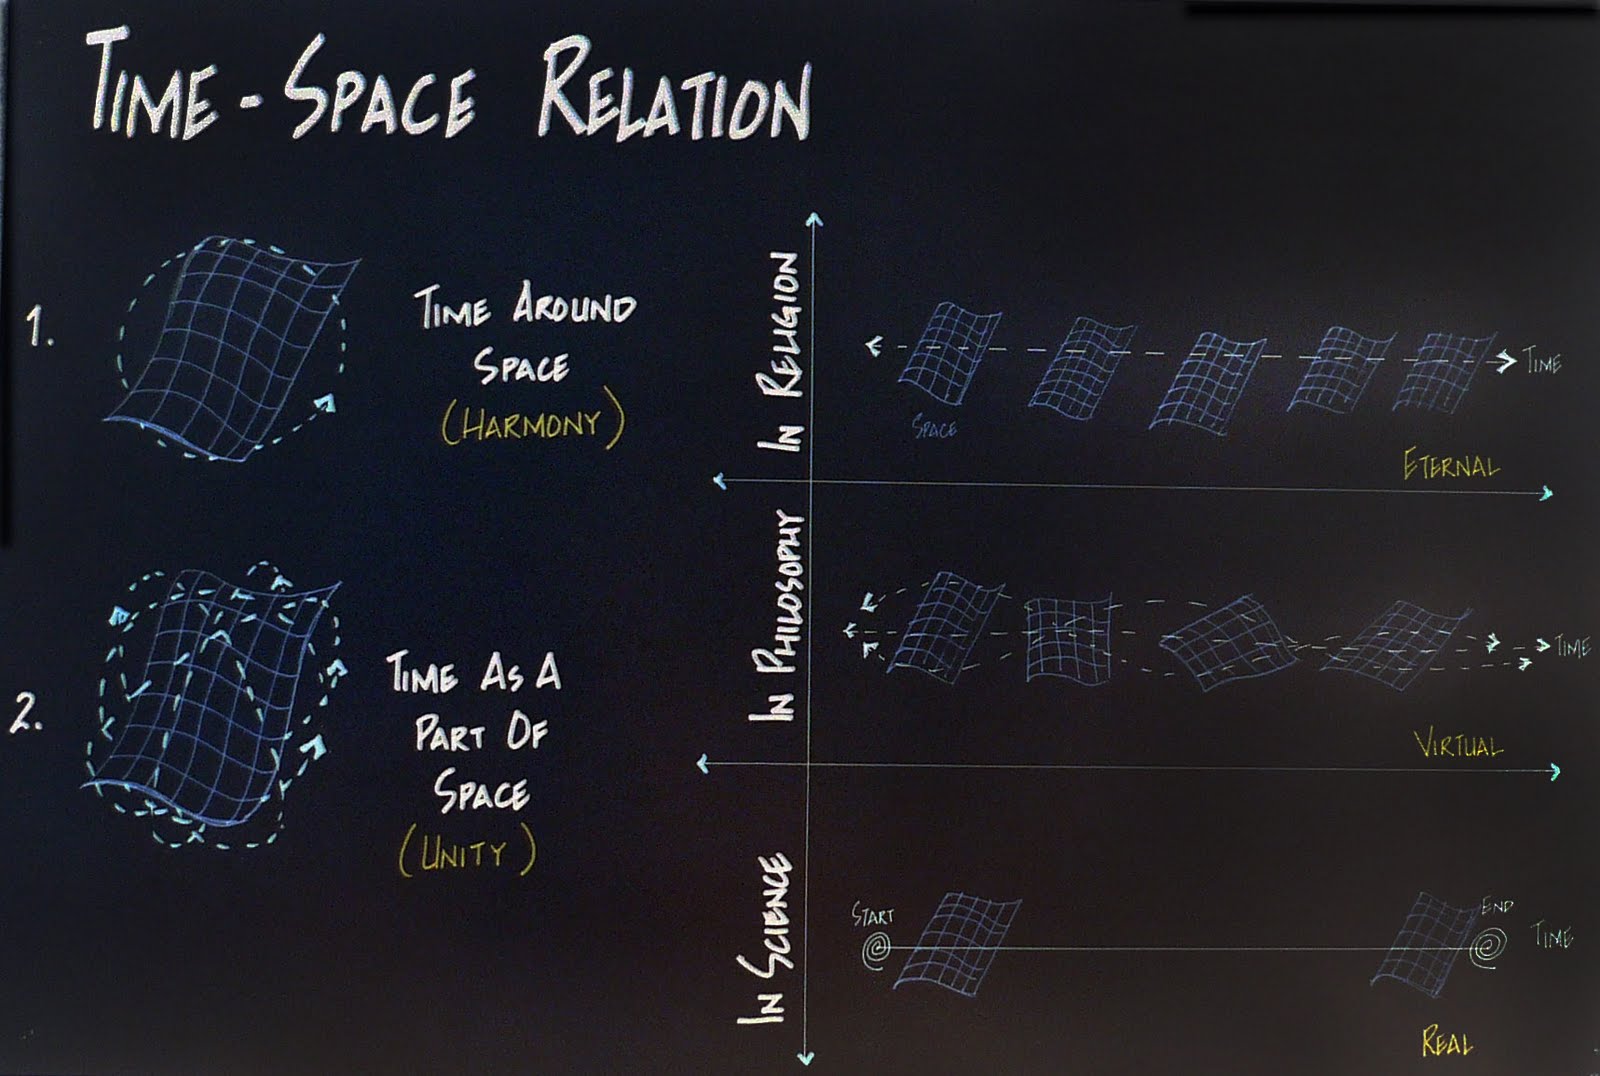 TIME-SPACE RELATION
1.
TIME AROUND
SPACE
(HARMONY)
2.
TIME AS A
PART OF
SPACE
(UNITY)
IN RELIGION
TIME
SPACE
ETERNAL
IN PHILOSOPHY
TIME
VIRTUAL
IN SCIENCE
START
END
TIME
REAL